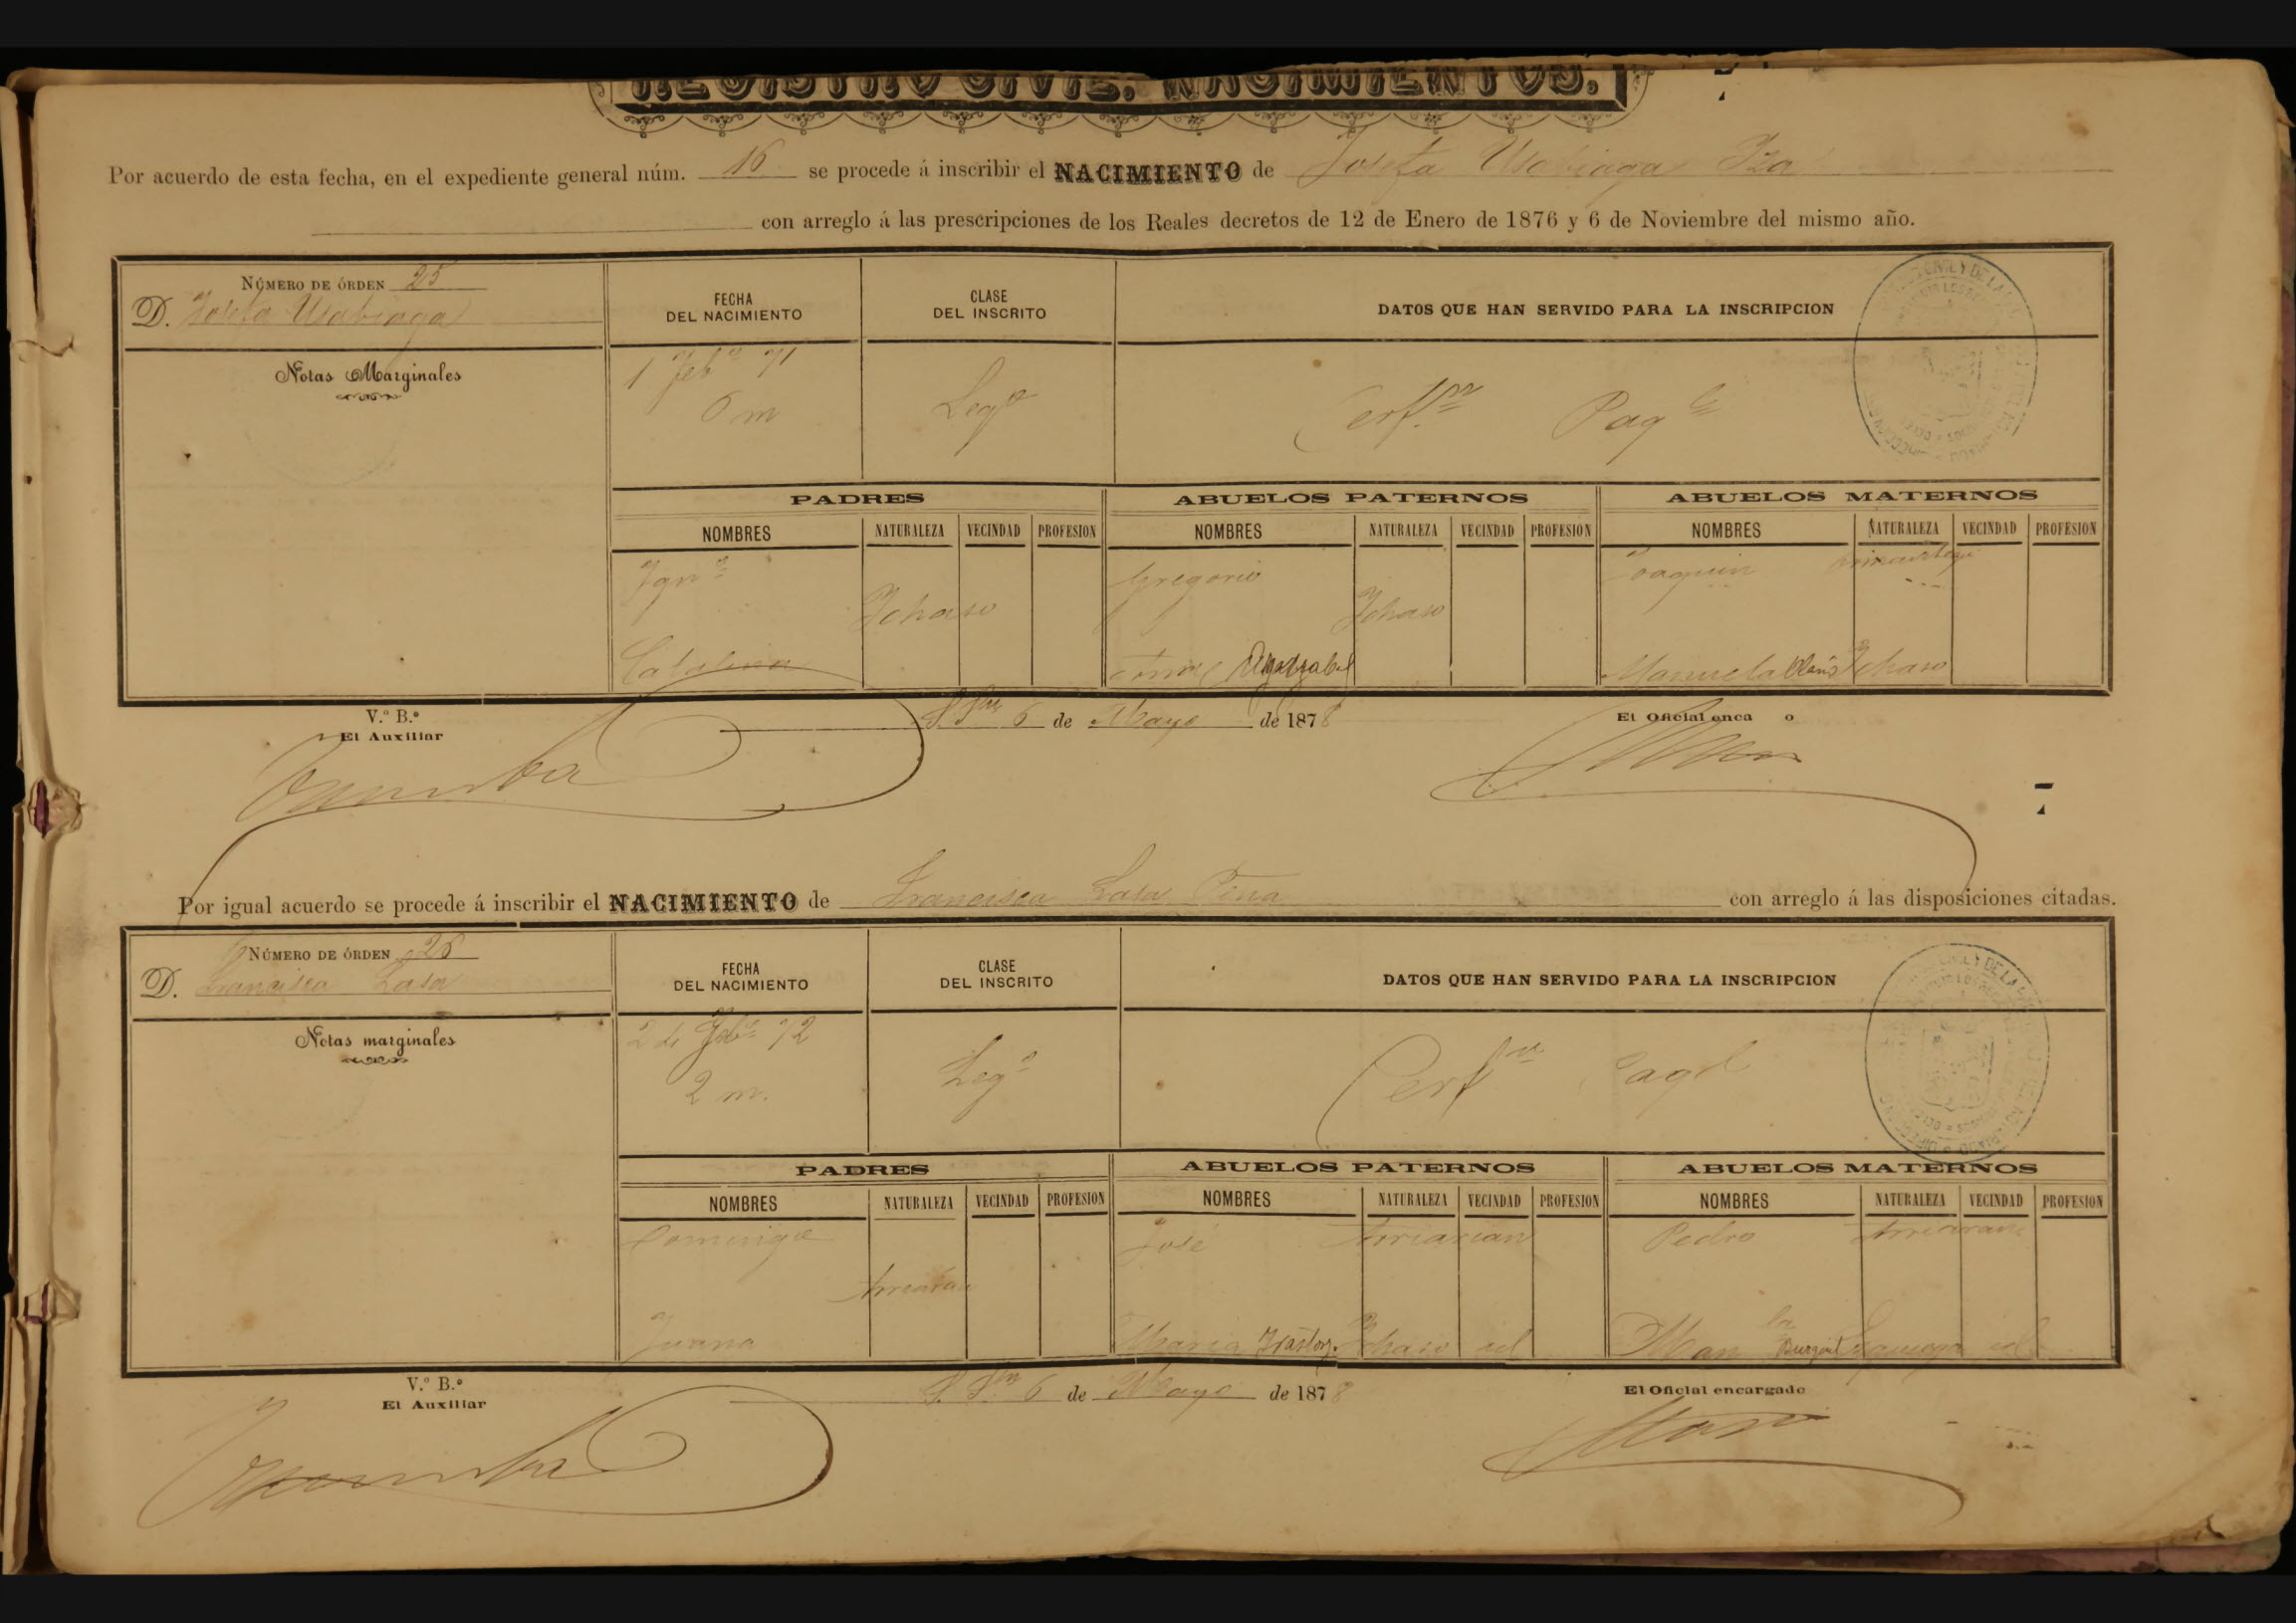 REGISTRO CIVIL. NACIMIENTOS.
Por acuerdo de esta fecha, en el expediente general núm. 16 se procede á inscribir el NACIMIENTO de Josefa Usabiaga Iza
con arreglo á las prescripciones de los Reales decretos de 12 de Enero de 1876 y 6 de Noviembre del mismo año.
NÚMERO DE ÓRDEN 25
D. Josefa Usabiaga
FECHA DEL NACIMIENTO
CLASE DEL INSCRITO
DATOS QUE HAN SERVIDO PARA LA INSCRIPCION
Notas Marginales
1 Feb.o 71
6 m
Leg.a
Cerf.on Paq.l
PADRES
ABUELOS PATERNOS
ABUELOS MATERNOS
NOMBRES NATURALEZA VECINDAD PROFESION
NOMBRES NATURALEZA VECINDAD PROFESION
NOMBRES NATURALEZA VECINDAD PROFESION
Ign.o Gregorio Joaquin
Ichaso Ichaso
Catalina Manuela Ichaso
V.º B.º
El Auxiliar
6 de Mayo de 1878
El Oficial enca o
Por igual acuerdo se procede á inscribir el NACIMIENTO de Francisca Lasa Peña con arreglo á las disposiciones citadas.
NÚMERO DE ÓRDEN 26
D. Francisca Lasa
FECHA DEL NACIMIENTO
CLASE DEL INSCRITO
DATOS QUE HAN SERVIDO PARA LA INSCRIPCION
Notas marginales
2 de Feb.o 72
2 m.
Leg.a
Cerf.on Paq.l
PADRES
ABUELOS PATERNOS
ABUELOS MATERNOS
NOMBRES NATURALEZA VECINDAD PROFESION
NOMBRES NATURALEZA VECINDAD PROFESION
NOMBRES NATURALEZA VECINDAD PROFESION
José Arriaran Pedro Arriaran
Arriaran
Juana Maria Ichaso id Man.la id
V.º B.º
El Auxiliar
6 de Mayo de 1878
El Oficial encargado